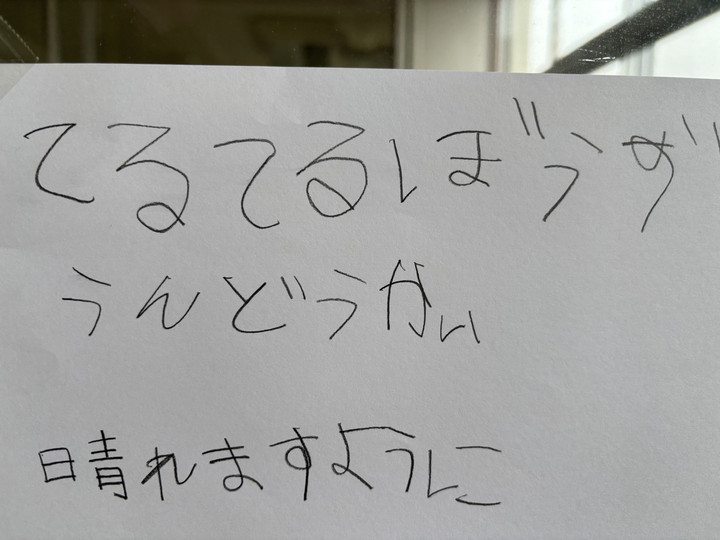 てるてるぼうず
うんどうかい
晴れますように